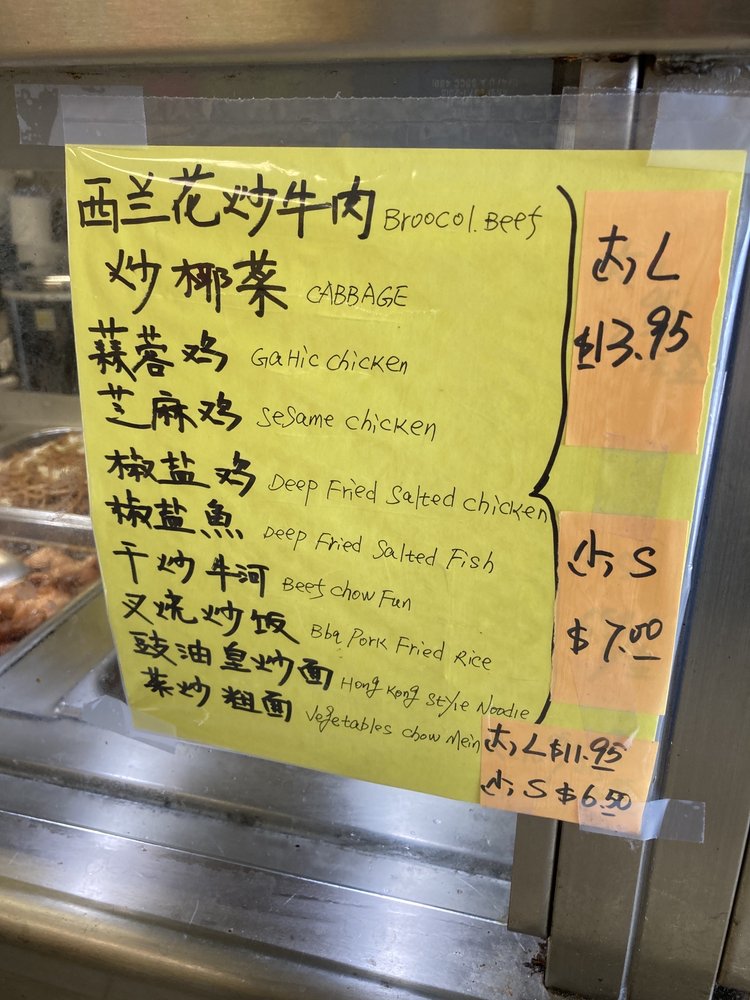 西兰花炒牛肉 Broocol. Beef
炒椰菜 CABBAGE
蒜蓉鸡 Garlic chicken
芝麻鸡 sesame chicken
椒盐鸡 Deep Fried Salted chicken
椒盐魚 Deep Fried Salted Fish
干炒牛河 Beef chow Fun
叉烧炒饭 Bbq Pork Fried Rice
豉油皇炒面 Hong Kong Style Noodle
菜炒粗面 Vegetables chow Mein
大, L
$13.95
小, S
$7.00
大, L $11.95
小, S $6.50